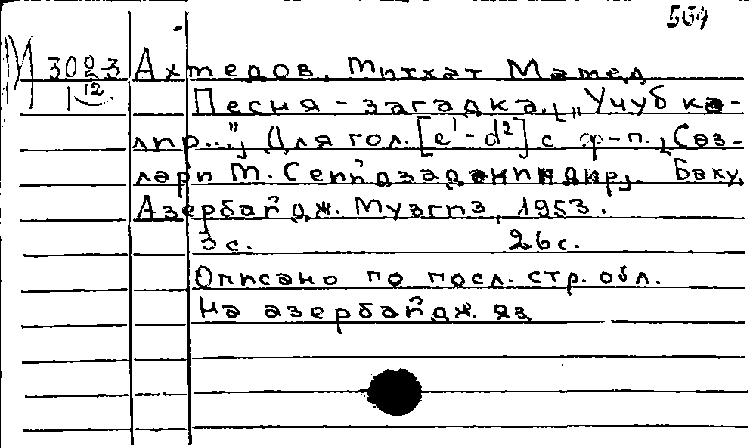 504
М 3023 Ахмедов, Митхат Мамед
1 12 Песня - загадка. [„Учуб кә-
лир..."] Для гол. [e¹-d²] с ф-п. [Сөз-
ләри М. Сеидзадәниндир]. Баку,
Азербайдж. Музгиз, 1953.
3 с. 26 с.
Описано по посл. стр. обл.
На азербайдж. яз